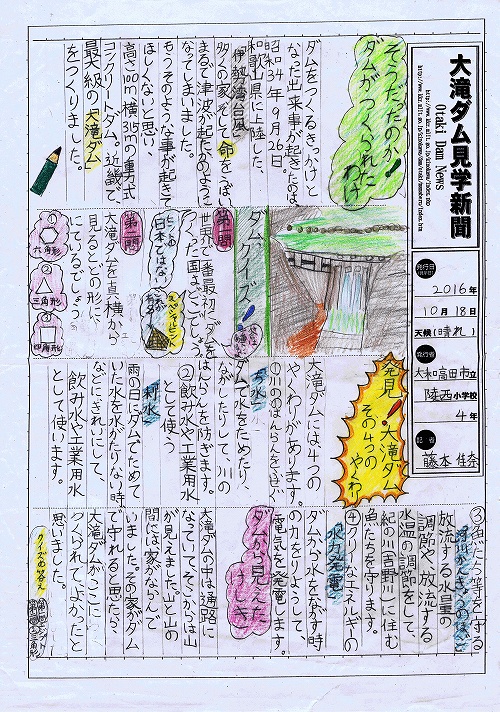 大滝ダム見学新聞
Otaki Dam News
発行日
2016年
10月18日
天候（晴れ）
発行者
大和高田市立
陵西小学校
4年
記者
藤本 佳奈
そうだったのか！
ダムがつくられた
わけ
ダムをつくるきっかけと
なった出来事が起きたのは、
昭和34年9月26日。
和歌山県に上陸した、
伊勢湾台風
多くの家そして命をうばい、
まるで津波が起きたかのように
なってしまいました。
もうそのような事が起きて
ほしくないと思い、
高さ100m横315mの重力式
コンクリートダム。近畿で、
最大級の「大滝ダム」
をつくりました。
ダムクイズ！
第一問
世界で一番最初にダムを
つくった国はどこでしょう。
ヒント
日本ではないよ
スペシャルヒント
第二問
大滝ダムを真横から
見るとどの形に、
にているでしょう。
①六角形
②三角形
③四角形
発見！大滝ダム
その4つの
やくわり
大滝ダムには、4つの
やくわりがあります。
①川ののはんらんをふせぐ
治水
ダムで水をためたり、
ながしたりして、川の
はんらんを防ぎます。
②飲み水や工業用水
として使う
利水
雨の日にダムでためて
いた水を水がたりない時
などに、きれいにして、
飲み水や工業用水
として使います。
③魚たち等を守る
放流する水量の
調節や放流する
水温の調節をして、
紀の川吉野川に住む
魚たちを守ります。
④クリーンなエネルギーの
水力発電
ダムから水をながす時
の力をりようして、
電気を発電します。
ダムから見えた
けしき
大滝ダムの中は通路に
なっていて、そこからは山
が見えました。山と山の
間には家がならんで
いました。その家がダム
で守れると思たら、
大滝ダムがここに
つくられてよかったと
思いました。
クイズの答え